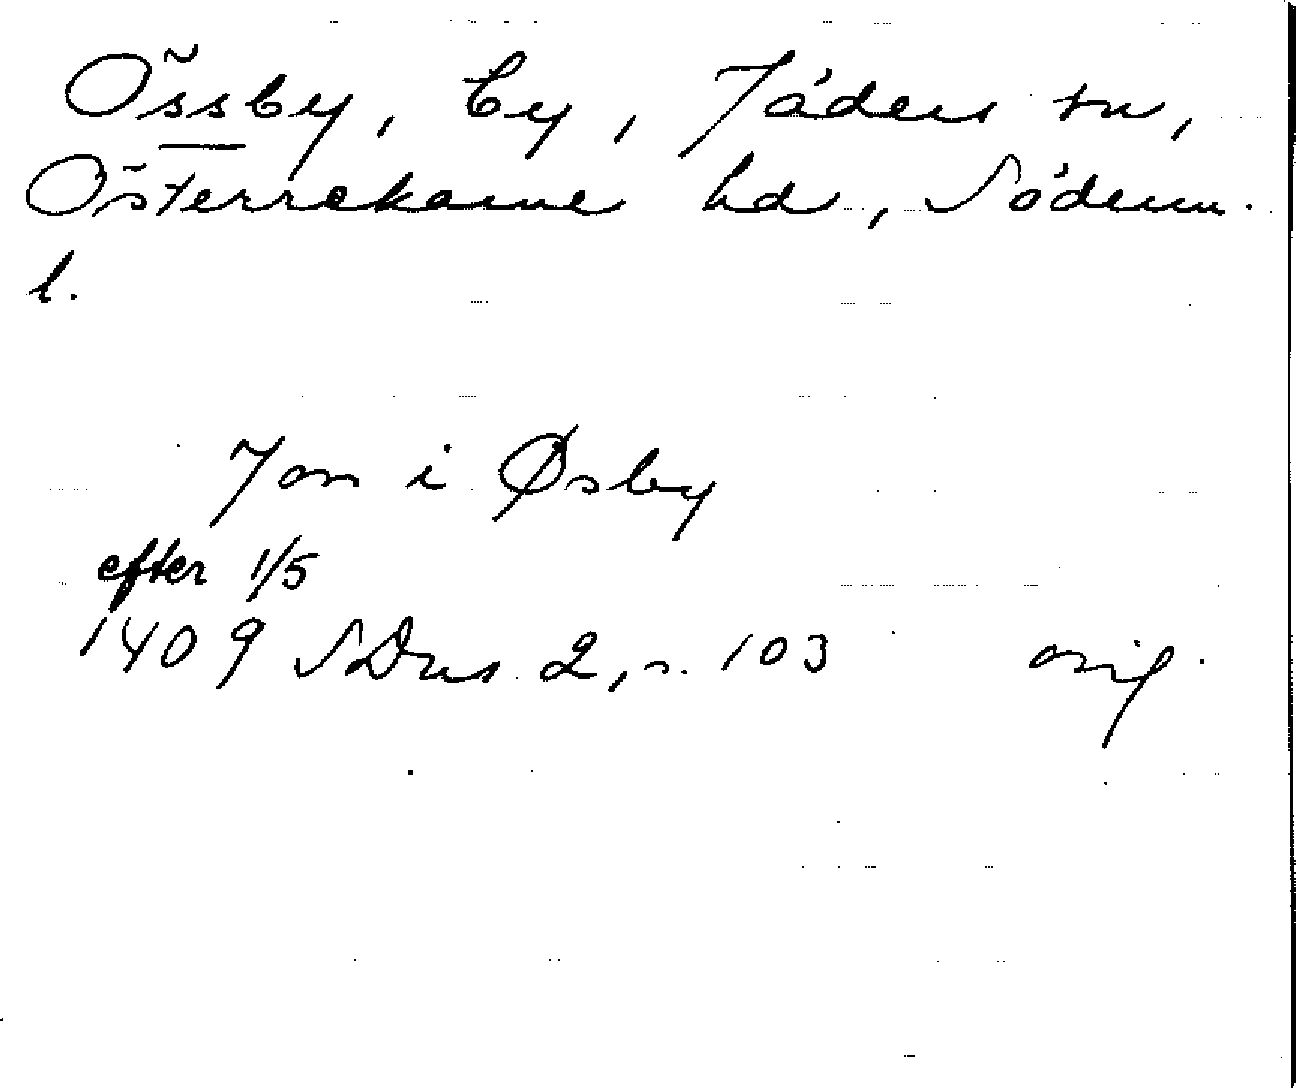 Össby, by, Jäders sn,
Österrekarne hd, Söderm.
l.
Jon i Øsby
efter 1/5
1409 SDns 2, s. 103 orig.